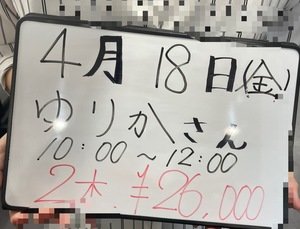 4月18日(金)
ゆりかさん
10:00~12:00
2木.¥26,000